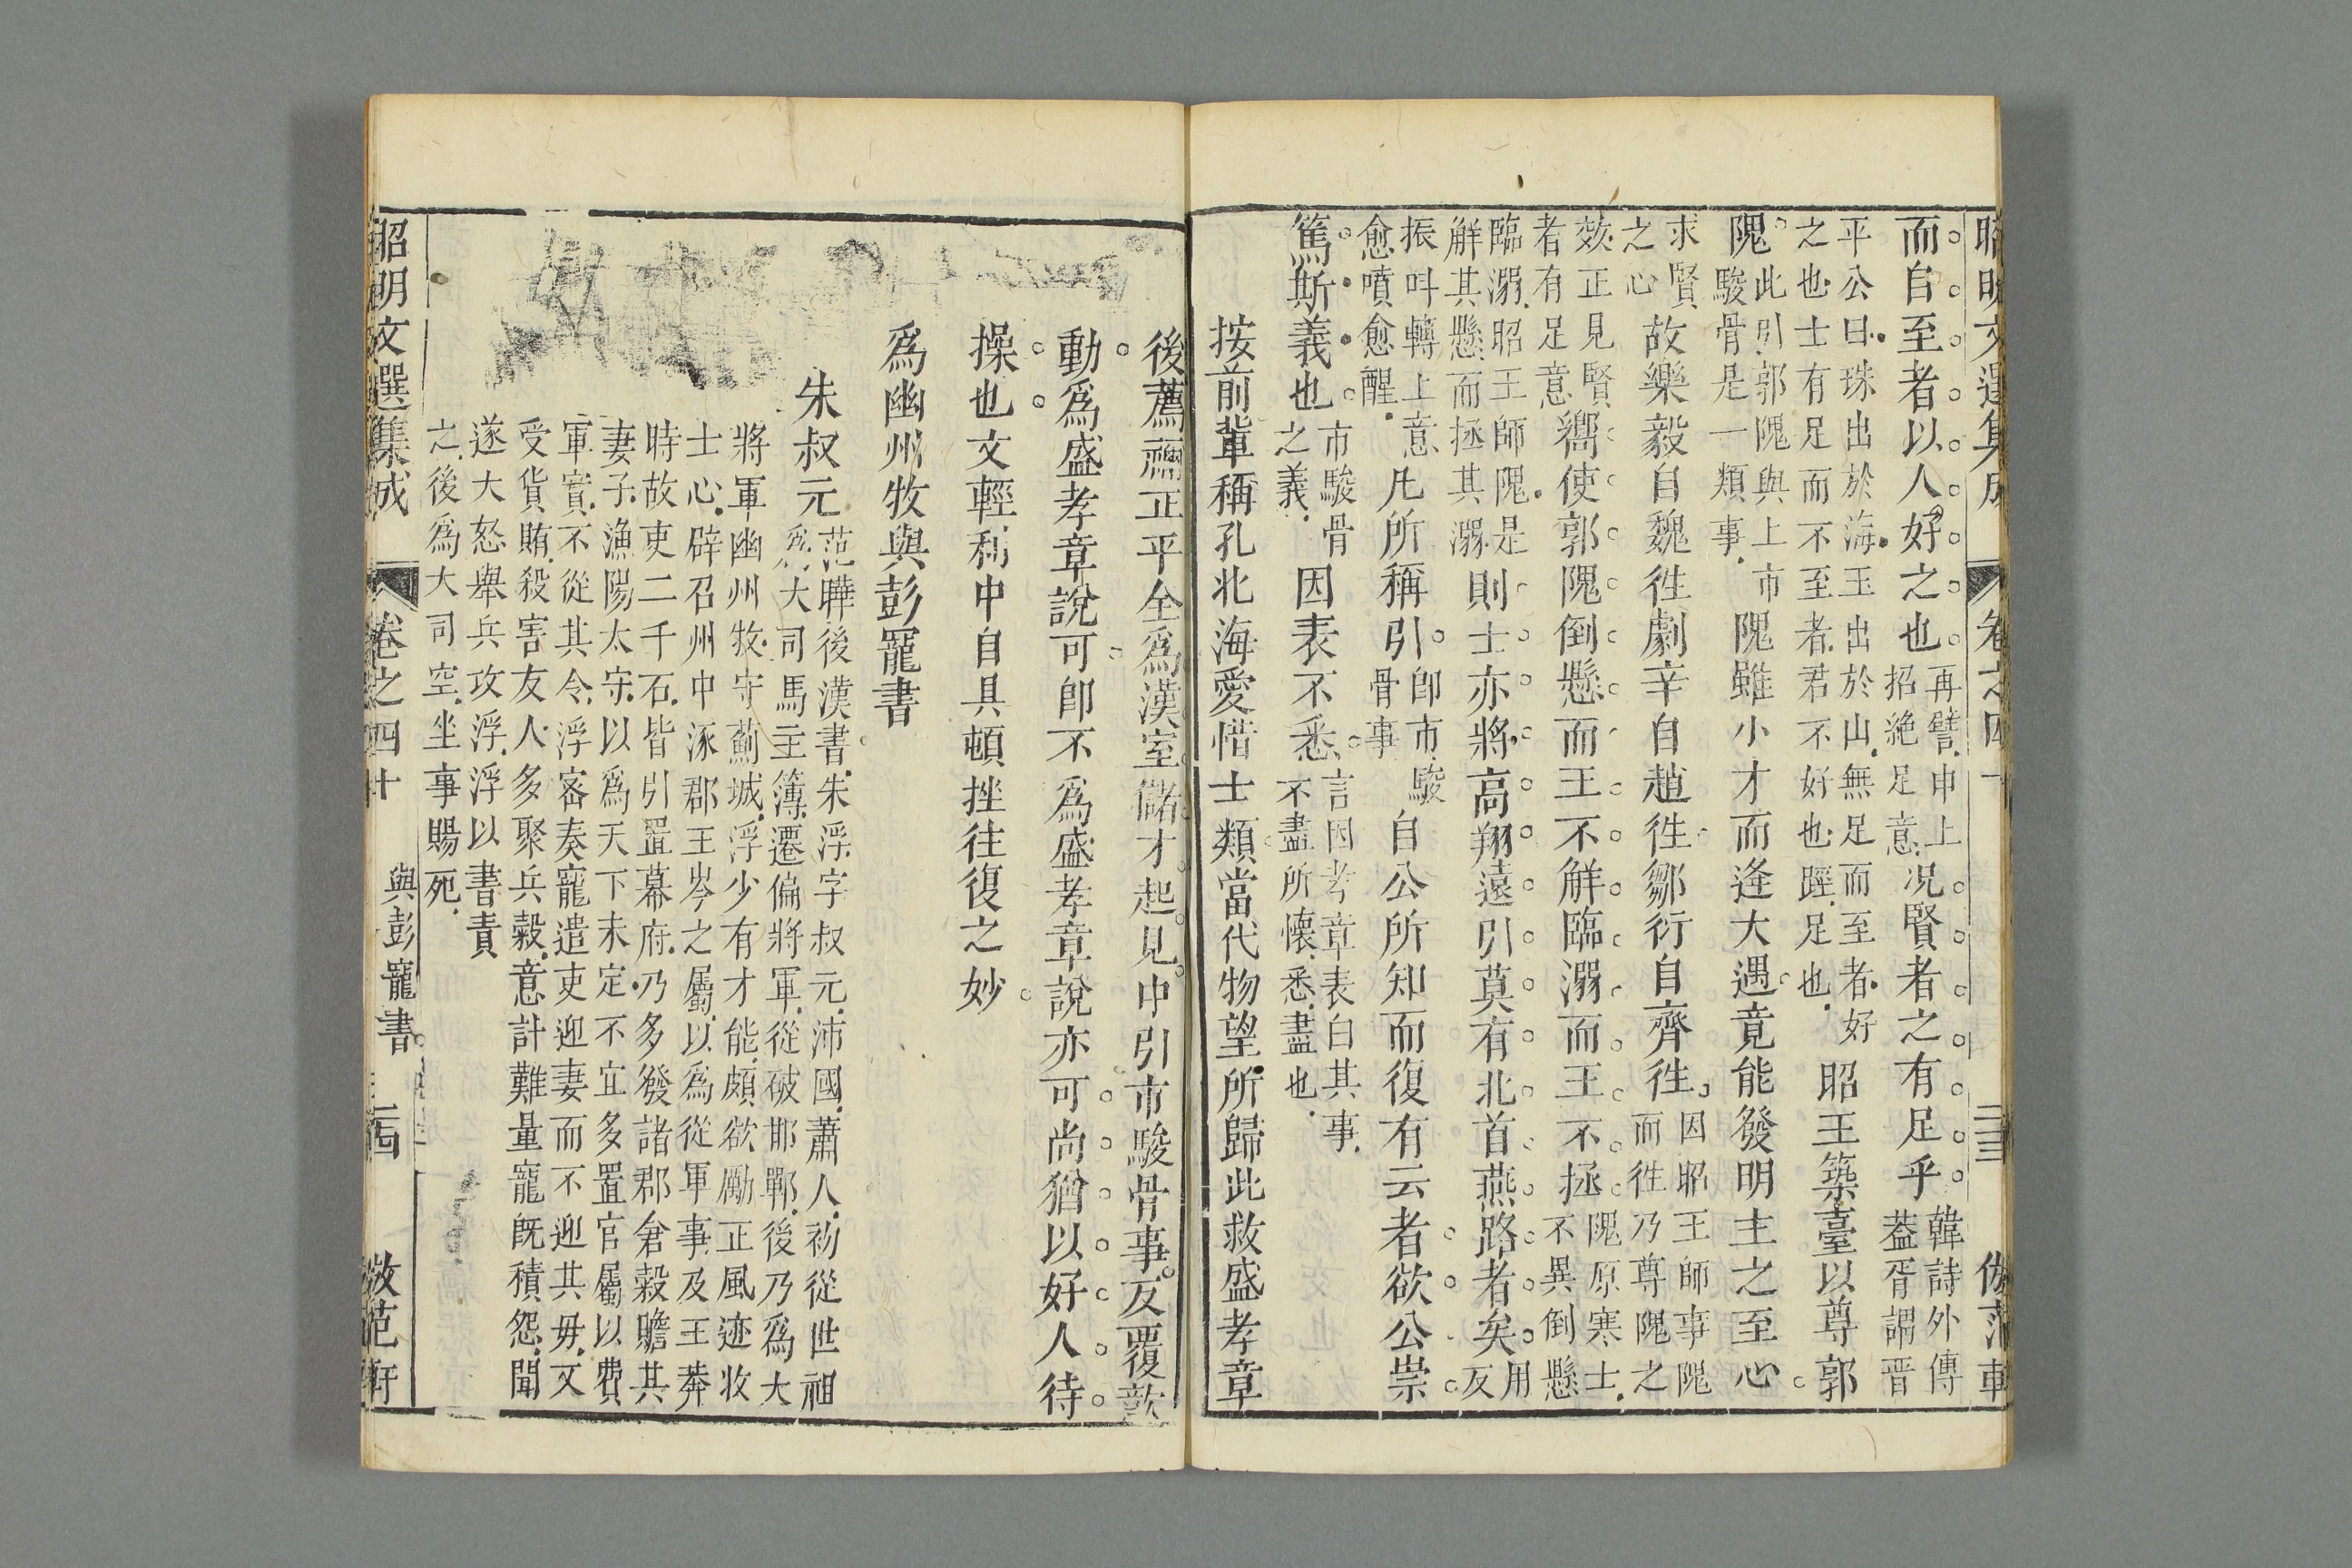 昭明文選集成 卷之四十 三三 倣范軒
而自至者以人好之也再譬申上招絕足意况賢者之有足乎韓詩外傳葢胥謂晉
平公曰珠出於海玉出於山無足而至者好之也士有足而不至者君不好也踁足也昭王築臺以尊郭
隗此引郭隗與上市駿骨是一類事隗雖小才而逢大遇竟能發明主之至心
求賢之心故樂毅自魏徃劇辛自趙徃鄒衍自齊徃因昭王師事隗而徃乃尊隗之
效正見賢者有足意嚮使郭隗倒懸而王不解臨溺而王不拯隗原寒士不異倒懸
臨溺昭王師隗是解其懸而拯其溺則士亦將高翔遠引莫有北首燕路者矣用反
振呌轉上意愈噴愈醒凡所稱引卽市駿骨事自公所知而復有云者欲公崇
篤斯義也市駿骨之義因表不悉言因孝章表白其事不盡所懷悉盡也
按前輩稱孔北海愛惜士類當代物望所歸此救盛孝章
後薦禰正平全爲漢室儲才起見中引市駿骨事反覆歆
動爲盛孝章說可卽不爲盛孝章說亦可尚猶以好人待
操也文輕利中自具頓挫往復之妙
爲幽州牧與彭寵書
朱叔元范曄後漢書朱浮字叔元沛國蕭人初從世祖爲大司馬主簿遷偏將軍從破邯鄲後乃爲大
將軍幽州牧守薊城浮少有才能頗欲勵正風迹收
士心辟召州中涿郡王岑之屬以爲從軍事及王莽
時故吏二千石皆引置幕府乃多發諸郡倉穀贍其
妻子漁陽太守以爲天下未定不宜多置官屬以費
軍實不從其令浮密奏寵遣吏迎妻而不迎其母又
受貨賄殺害友人多聚兵穀意計難量寵旣積怨聞
遂大怒舉兵攻浮浮以書責
之後爲大司空坐事賜死
昭明文選集成 卷之四十 與彭寵書 三四 倣范軒